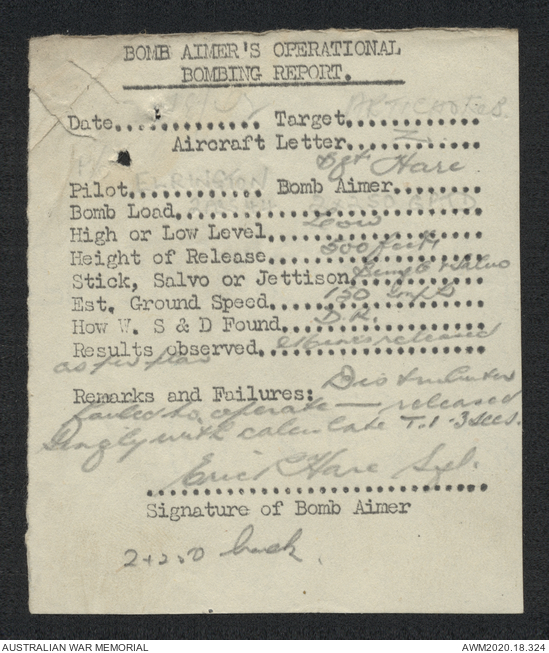 BOMB AIMER'S OPERATIONAL
BOMBING REPORT.
Date.............. Target.............
Aircraft Letter.............
Sgt Hare
Pilot.............. Bomb Aimer.........
Bomb Load..............................
High or Low Level... Low
Height of Release... 500 feet
Stick, Salvo or Jettison... Salvo
Est. Ground Speed... 150
How W. S & D Found... D.R.
Results observed... released
as per plan
Remarks and Failures: Distributor
failed to operate — released
singly with calculate T.I. 3 secs.
Eric Hare Sgt.
Signature of Bomb Aimer
2 x 250 back.
AUSTRALIAN WAR MEMORIAL
AWM2020.18.324